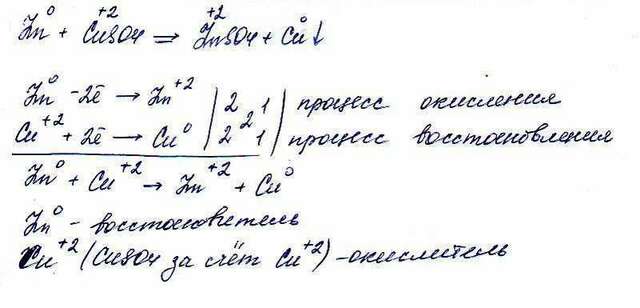 Zn⁰ + Cu⁺²SO4 = Zn⁺²SO4 + Cu⁰↓
Zn⁰ -2ē → Zn⁺² | 2 | 1 | процесс окисления
2
Cu⁺² + 2ē → Cu⁰ | 2 | 1 | процесс восстановления
Zn⁰ + Cu⁺² → Zn⁺² + Cu⁰
Zn⁰ - восстановитель
Cu⁺² (CuSO4 за счёт Cu⁺²) - окислитель